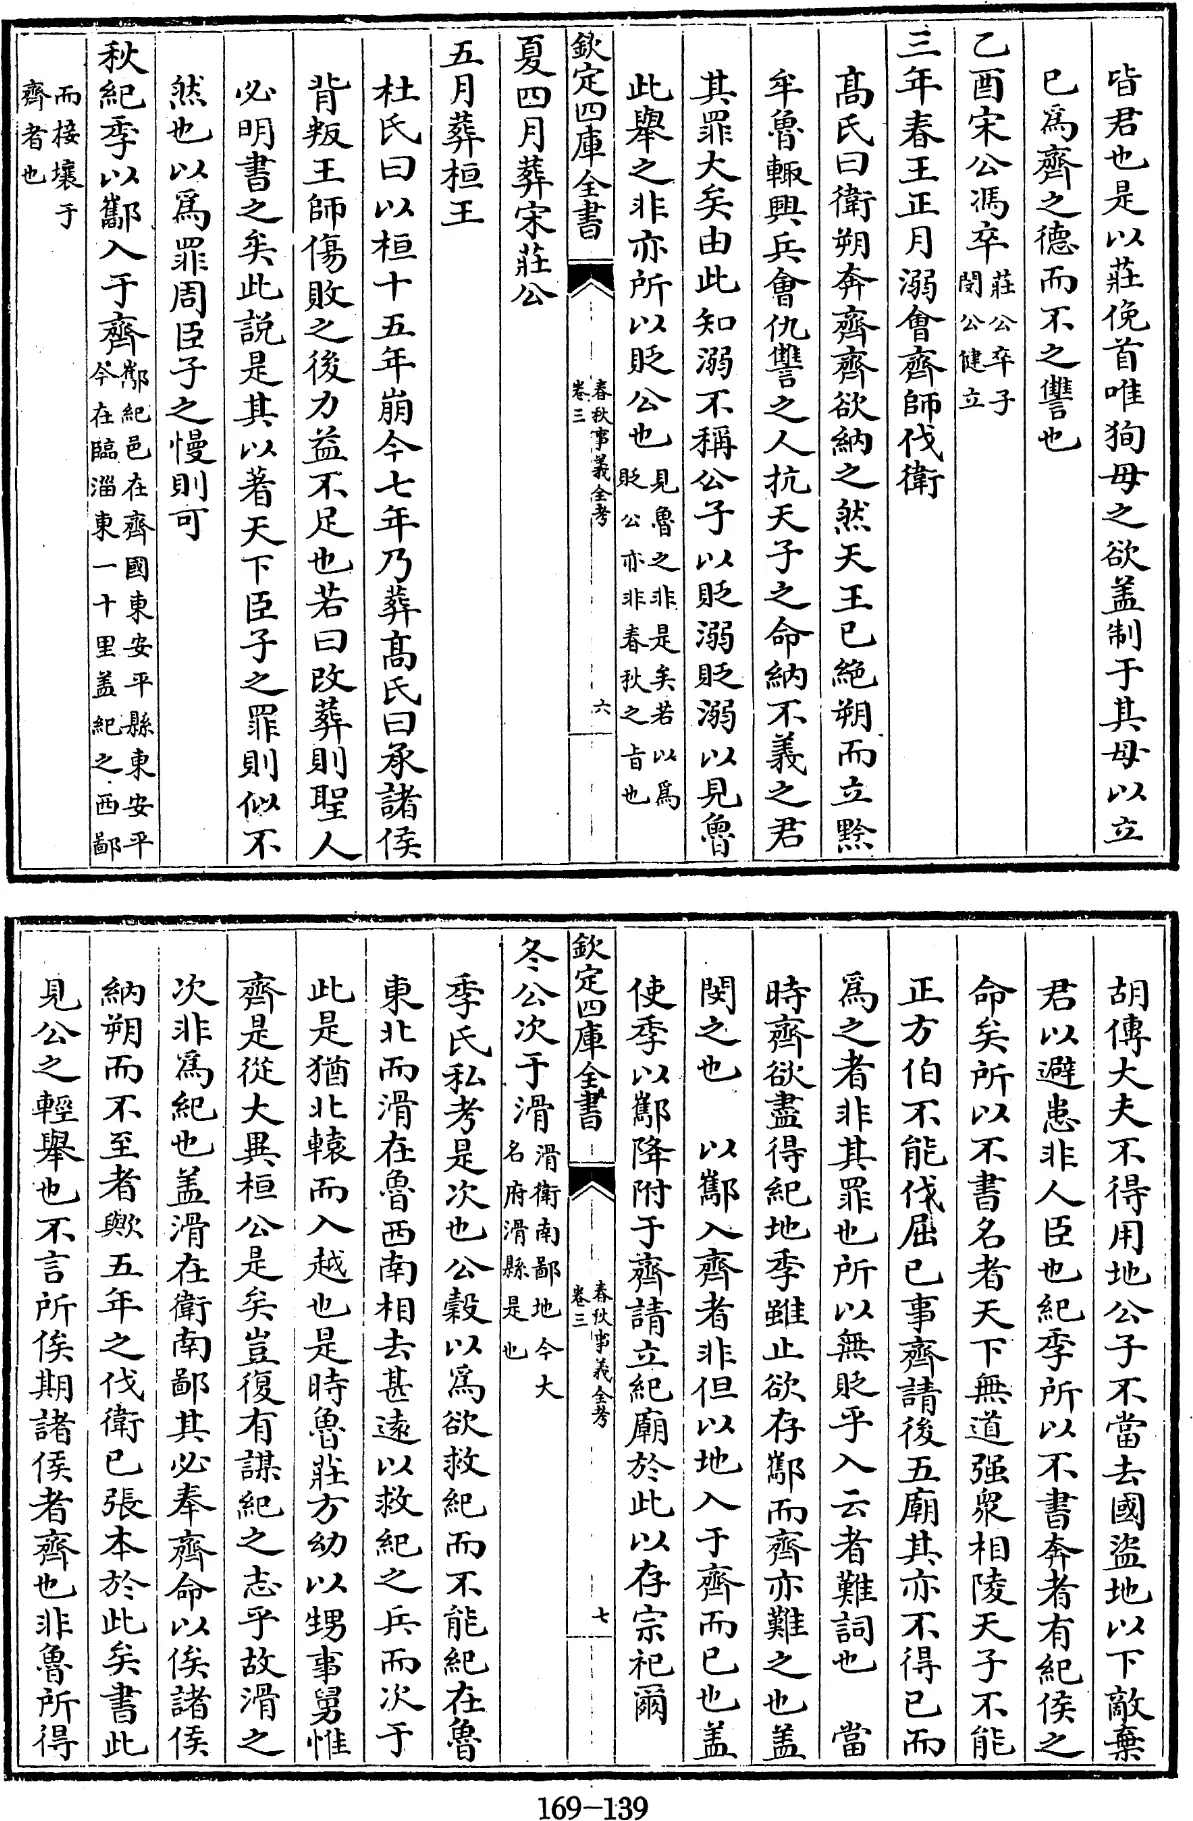 皆君也是以莊俛首唯狥母之欲盖制于其母以立
已為齊之德而不之讐也
乙酉宋公馮卒莊公卒子閔公健立
三年春王正月溺會齊師伐衛
髙氏曰衛朔奔齊齊欲納之然天王已絶朔而立黔
牟魯輙興兵會仇讐之人抗天子之命納不義之君
其罪大矣由此知溺不稱公子以貶溺貶溺以見魯
此舉之非亦所以貶公也見魯之非是矣若以為貶公亦非春秋之㫖也
欽定四庫全書
春秋事義全考
卷三
六
夏四月葬宋莊公
五月葬桓王
杜氏曰以桓十五年崩今七年乃葬髙氏曰承諸侯
背叛王師傷敗之後力益不足也若曰改葬則聖人
必明書之矣此説是其以著天下臣子之罪則似不
然也以為罪周臣子之慢則可
秋紀季以酅入于齊酅紀邑在齊國東安平縣東安平今在臨淄東一十里盖紀之西鄙
而接壤于齊者也
胡傳大夫不得用地公子不當去國盜地以下敵棄
君以避患非人臣也紀季所以不書奔者有紀侯之
命矣所以不書名者天下無道强衆相陵天子不能
正方伯不能伐屈已事齊請後五廟其亦不得已而
為之者非其罪也所以無貶乎入云者難詞也　當
時齊欲盡得紀地季雖止欲存酅而齊亦難之也盖
閔之也　以酅入齊者非但以地入于齊而已也盖
使季以酅降附于齊請立紀廟於此以存宗祀爾
欽定四庫全書
春秋事義全考
卷三
七
冬公次于滑滑衛南鄙地今大名府滑縣是也
季氏私考是次也公穀以為欲救紀而不能紀在魯
東北而滑在魯西南相去甚遠以救紀之兵而次于
此是猶北轅而入越也是時魯莊方幼以甥事舅惟
齊是從大異桓公是矣豈復有謀紀之志乎故滑之
次非為紀也盖滑在衛南鄙其必奉齊命以俟諸侯
納朔而不至者歟五年之伐衛已張本於此矣書此
見公之輕舉也不言所俟期諸侯者齊也非魯所得
169-139